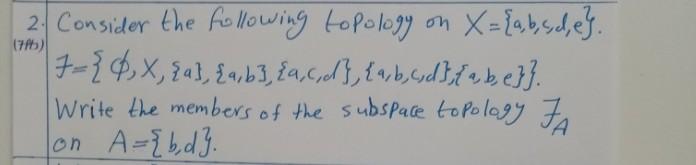 2. Consider the following topology on X={a,b,c,d,e}.
(7Pts) J={ϕ, X, {a}, {a,b}, {a,c,d}, {a,b,c,d}, {a,b,e}}.
Write the members of the subspace topology J_A
on A={b,d}.